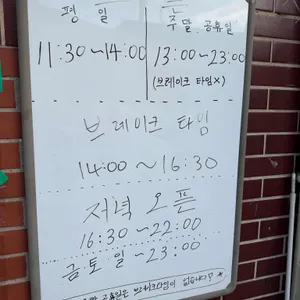 평 일
주말 공휴일
11:30~14:00
13:00~23:00
(브레이크 타임X)
브레이크 타임
14:00~16:30
저녁 오픈
16:30~22:00
금토일~23:00
공휴일은 브레이크타임이 없습니다